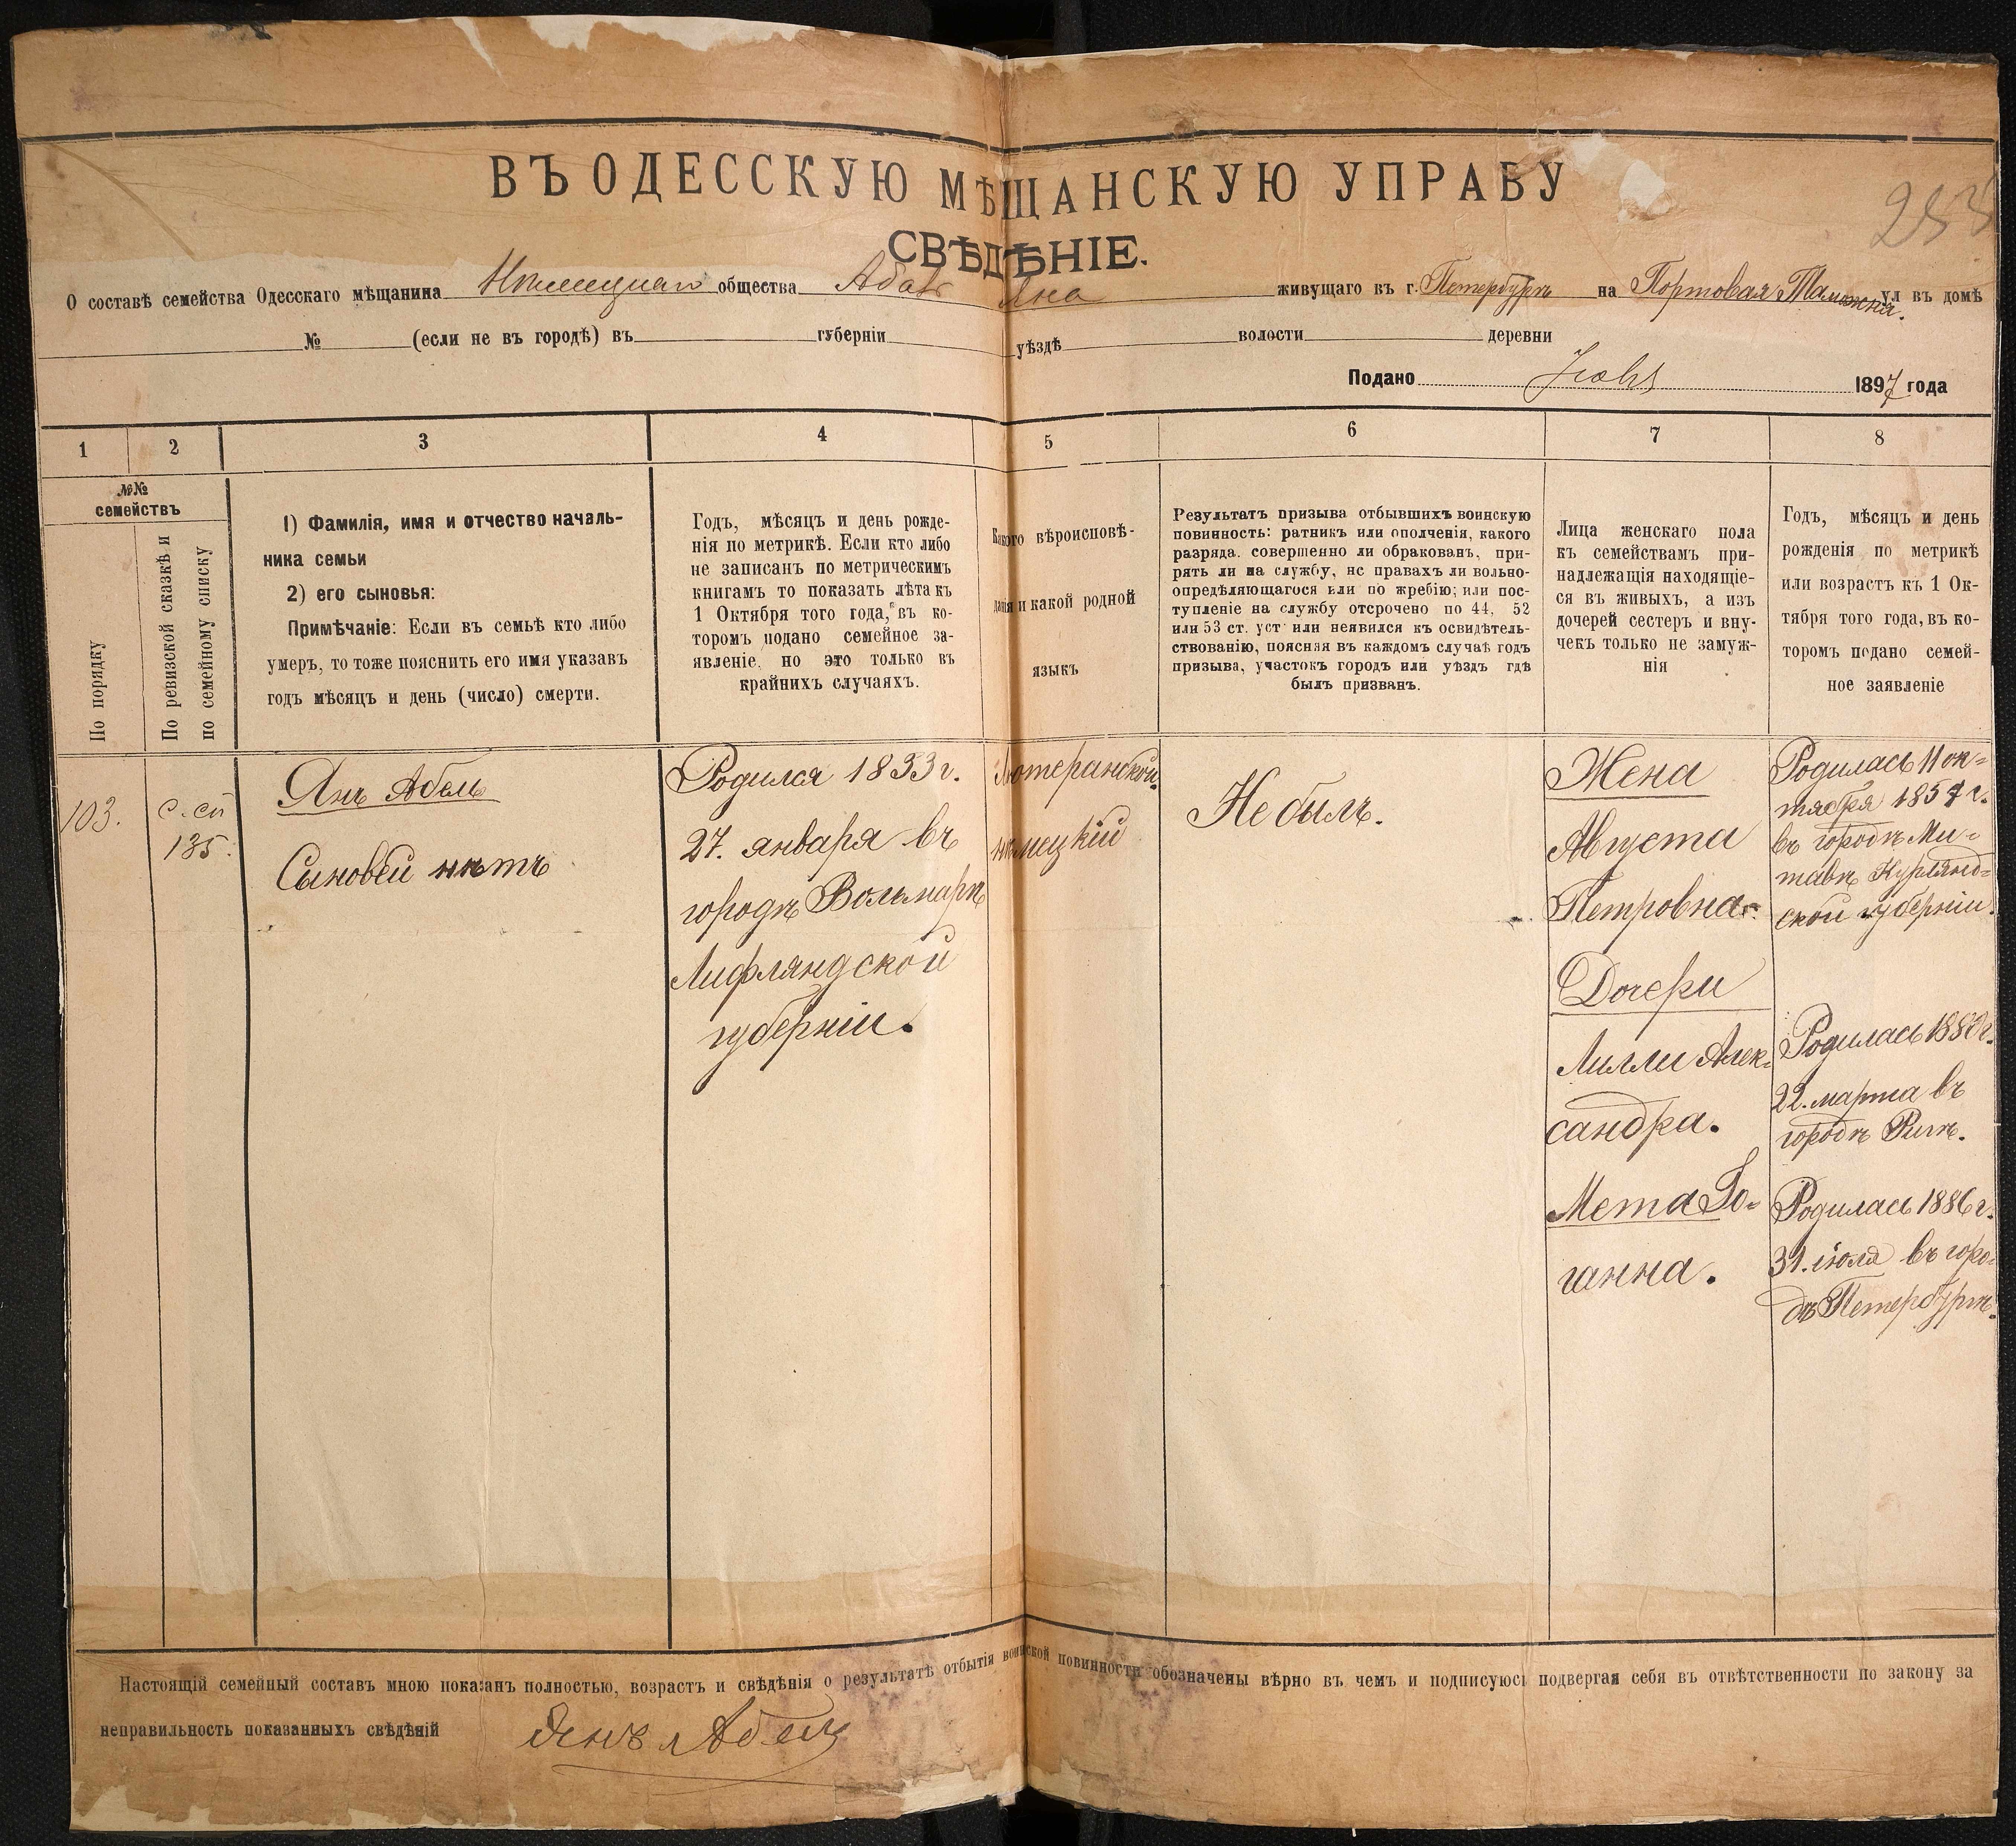 ВЪ ОДЕССКУЮ МѢЩАНСКУЮ УПРАВУ
СВѢДѢНІЕ.
О составѣ семейства Одесскаго мѣщанина Нѣмецкаго общества Яна живущаго въ г. Петербургѣ на Портовая Таможня. ул въ домѣ
№ (если не въ городѣ) въ губерніи уѣздѣ волости деревни
Подано 1897 года
1 2 3 4 5 6 7 8
№№ семействъ
По порядку
По ревизской сказкѣ и
по семейному списку
1) Фамилія, имя и отчество началь-
ника семьи
2) его сыновья:
Примѣчаніе: Если въ семьѣ кто либо
умеръ, то тоже пояснить его имя указавъ
годъ мѣсяцъ и день (число) смерти.
Годъ, мѣсяцъ и день рожде-
нія по метрикѣ. Если кто либо
не записанъ по метрическимъ
книгамъ то показать лѣта къ
1 Октября того года, въ ко-
торомъ подано семейное за-
явленіе, но это только въ
крайнихъ случаяхъ.
Какого вѣроисповѣ-
данія и какой родной
языкъ
Результатъ призыва отбывшихъ воинскую
повинность: ратникъ или ополченія, какого
разряда, совершенно ли обракованъ, при-
рять ли на службу, нс правахъ ли вольно-
опредѣляющагося или по жребію; или пос-
тупленіе на службу отсрочено по 44, 52
или 53 ст. уст или неявился къ освидѣтель-
ствованію, поясняя въ каждомъ случаѣ годъ
призыва, участокъ городъ или уѣздъ гдѣ
былъ призванъ.
Лица женскаго пола
къ семействамъ при-
надлежащія находящіе-
ся въ живыхъ, а изъ
дочерей сестеръ и вну-
чекъ только не замуж-
нія
Годъ, мѣсяцъ и день
рожденія по метрикѣ
или возрастъ къ 1 Ок-
тября того года, въ ко-
торомъ подано семей-
ное заявленіе
103.
с. сп
135.
Янъ Абель
Сыновей нѣтъ
Родился 1833 г.
27. января въ
городѣ Вольмарѣ
Лифляндской
губерніи.
Лютеранской.
нѣмецкій
Не былъ.
Жена
Августа
Петровна.
Дочери
Лилли Алек-
сандра.
Мета Іо-
ганна.
Родилась 11 ок-
тября г.
въ городѣ Ми-
тавѣ Курлянд-
ской губерніи.
Родилась г.
22. марта въ
городѣ Ригѣ.
Родилась 1886 г.
31. іюля въ горо-
дѣ Петербургѣ.
Настоящій семейный составъ мною показанъ полностью, возрастъ и свѣдѣнія о результатѣ отбытія воинской повинности обозначены вѣрно въ чемъ и подписуюсь подвергая себя въ отвѣтственности по закону за
неправильность показанныхъ свѣдѣній Янъ Абель